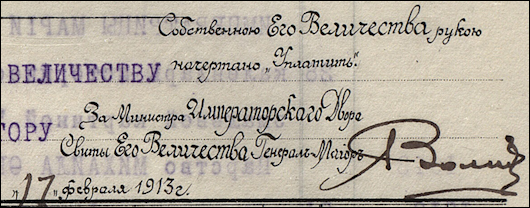 Собственною Его Величества рукою
начертано „Уплатить“.
ОВЕЛИЧЕСТВУ
За Министра Императорскаго Двора
ГОРУ
Свиты Его Величества Генералъ-Маіоръ
„17„ февраля 1913 г.